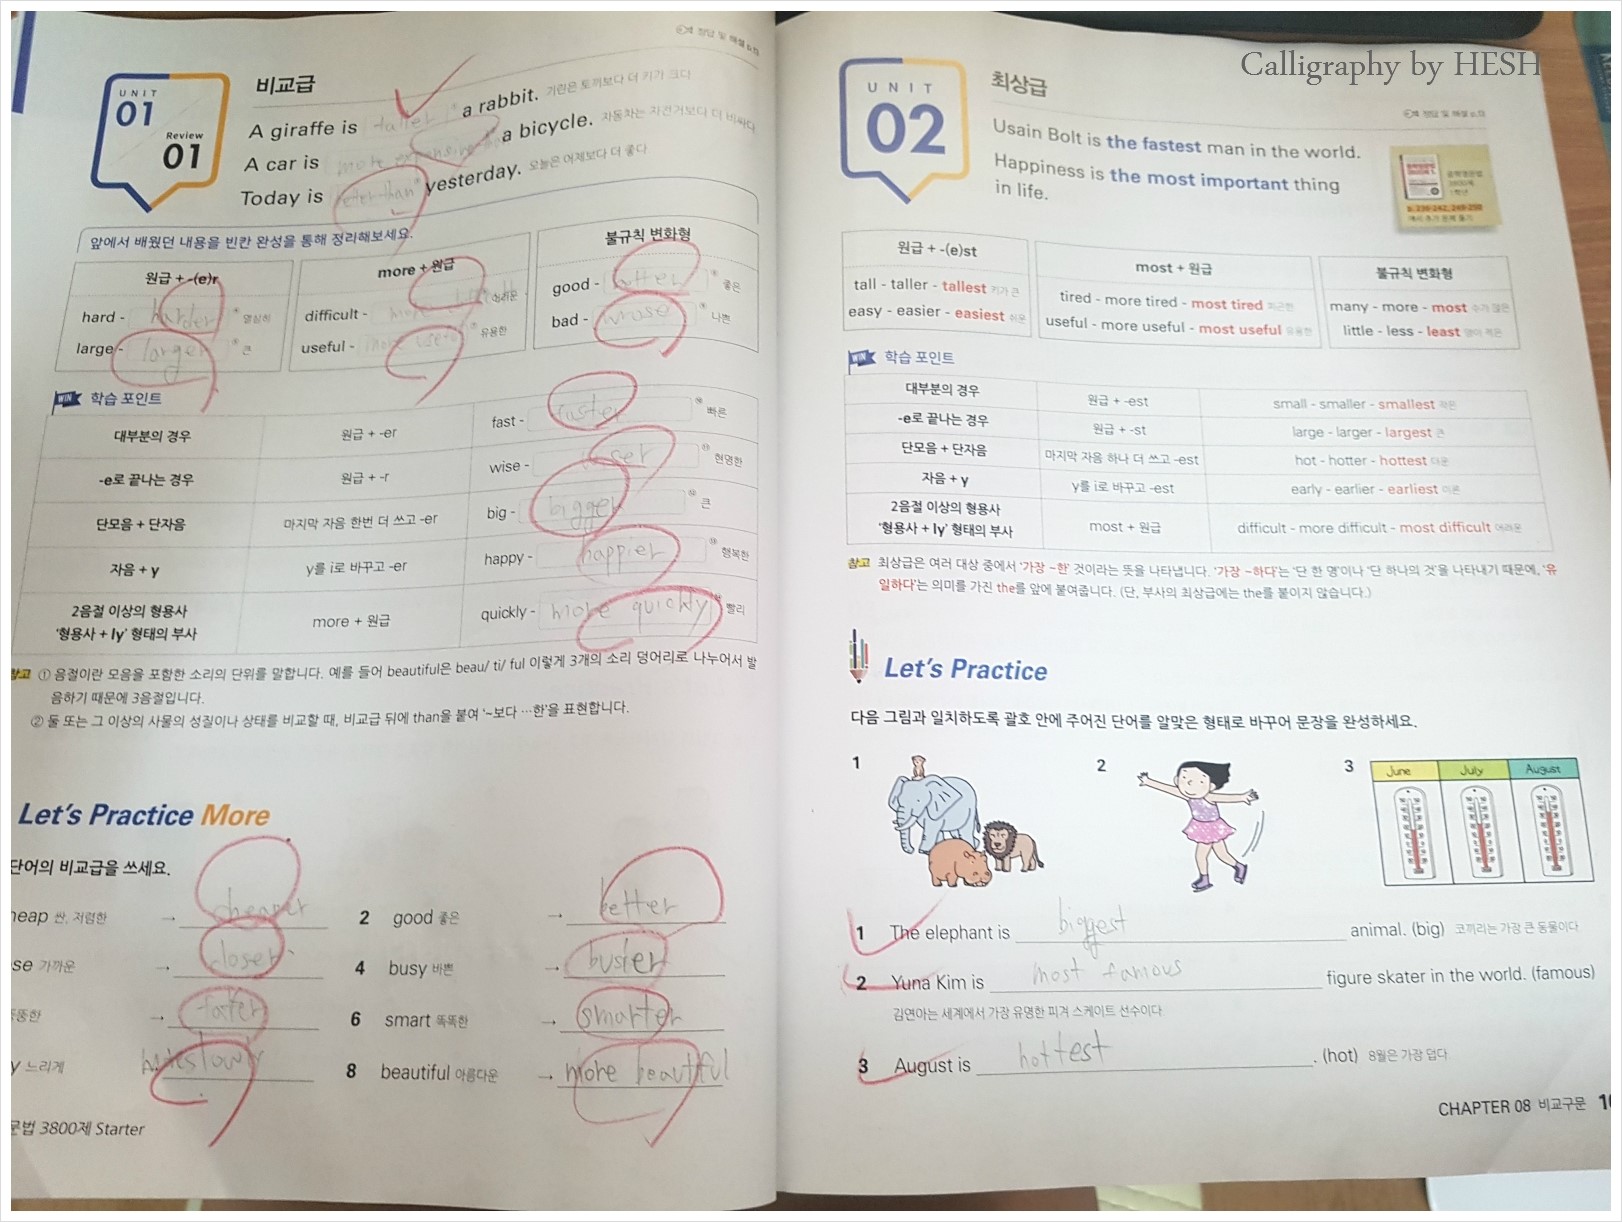 Calligraphy by HESH
정답 및 해설 p.
UNIT
01
Review
01
비교급
A giraffe is taller a rabbit. 기린은 토끼보다 더 키가 크다
A car is more expensive a bicycle. 자동차는 자전거보다 더 비싸다
Today is than yesterday. 오늘은 어제보다 더 좋다
앞에서 배웠던 내용을 빈칸 완성을 통해 정리해보세요.
원급 + -(e)r
hard - harder 열심히
large - larger 큰
more + 원급
difficult - more 어려운
useful - more useful 유용한
불규칙 변화형
good - better 좋은
bad - wrose 나쁜
WIN 학습 포인트
대부분의 경우 원급 + -er fast - faster 빠른
-e로 끝나는 경우 원급 + -r wise - 현명한
단모음 + 단자음 마지막 자음 한번 더 쓰고 -er big - bigger 큰
자음 + y y를 i로 바꾸고 -er happy - happier 행복한
2음절 이상의 형용사
'형용사 + ly' 형태의 부사 more + 원급 quickly - more quickly 빨리
참고 ① 음절이란 모음을 포함한 소리의 단위를 말합니다. 예를 들어 beautiful은 beau/ ti/ ful 이렇게 3개의 소리 덩어리로 나누어서 발
음하기 때문에 3음절입니다.
② 둘 또는 그 이상의 사물의 성질이나 상태를 비교할 때, 비교급 뒤에 than을 붙여 '~보다 …한'을 표현합니다.
Let's Practice More
단어의 비교급을 쓰세요.
heap 싼, 저렴한 → cheaper 2 good 좋은 → better
se 가까운 → closer 4 busy 바쁜 → busier
뚱한 → fater 6 smart 똑똑한 → smarter
y 느리게 8 beautiful 아름다운 → more beautiful
문법 3800제 Starter
UNIT
02
최상급
정답 및 해설 p.
Usain Bolt is the fastest man in the world.
Happiness is the most important thing
in life.
p. 239-242, 249-250
원급 + -(e)st
tall - taller - tallest 키가 큰
easy - easier - easiest 쉬운
most + 원급
tired - more tired - most tired 피곤한
useful - more useful - most useful 유용한
불규칙 변화형
many - more - most 수가 많은
little - less - least 양이 적은
WIN 학습 포인트
대부분의 경우 원급 + -est small - smaller - smallest 작은
-e로 끝나는 경우 원급 + -st large - larger - largest 큰
단모음 + 단자음 마지막 자음 하나 더 쓰고 -est hot - hotter - hottest 더운
자음 + y y를 i로 바꾸고 -est early - earlier - earliest 이른
2음절 이상의 형용사
'형용사 + ly' 형태의 부사 most + 원급 difficult - more difficult - most difficult 어려운
참고 최상급은 여러 대상 중에서 '가장 ~한' 것이라는 뜻을 나타냅니다. '가장 ~하다'는 '단 한 명'이나 '단 하나의 것'을 나타내기 때문에, '유
일하다'는 의미를 가진 the를 앞에 붙여줍니다. (단, 부사의 최상급에는 the를 붙이지 않습니다.)
Let's Practice
다음 그림과 일치하도록 괄호 안에 주어진 단어를 알맞은 형태로 바꾸어 문장을 완성하세요.
1 2 3
June July August
1 The elephant is biggest animal. (big) 코끼리는 가장 큰 동물이다
2 Yuna Kim is most famous figure skater in the world. (famous)
김연아는 세계에서 가장 유명한 피겨 스케이트 선수이다
3 August is hottest . (hot) 8월은 가장 덥다
CHAPTER 08 비교구문